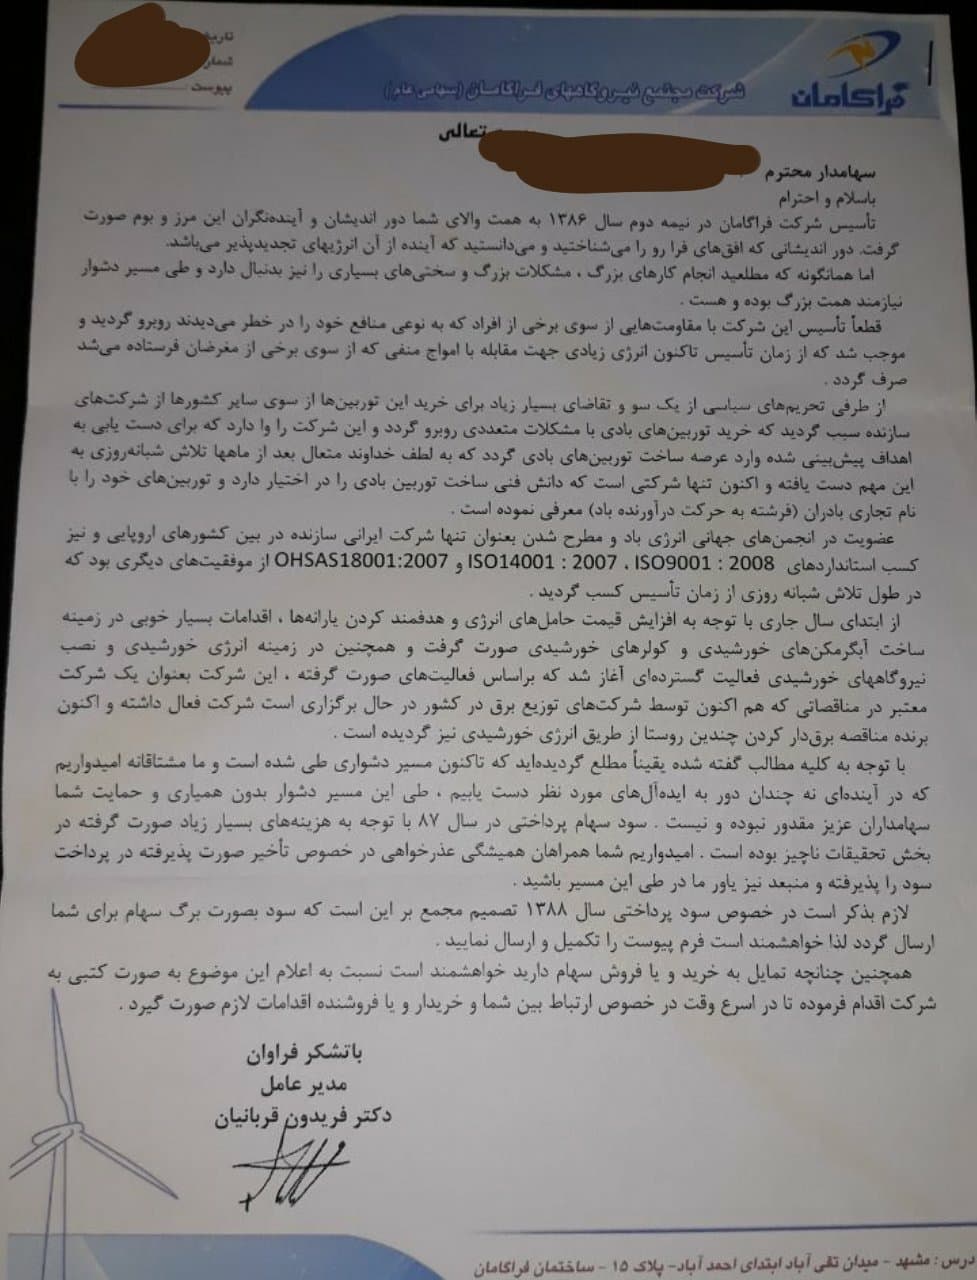 فراکامان
شرکت مجتمع نیروگاههای فراکامان (سهامی عام)
تاریخ
شماره
پیوست
تعالی
سهامدار محترم
باسلام و احترام
تأسیس شرکت فراگامان در نیمه دوم سال ۱۳۸۶ به همت والای شما دور اندیشان و آینده‌نگران این مرز و بوم صورت
گرفت. دور اندیشانی که افق‌های فرا رو را می‌شناختید و می‌دانستید که آینده از آن انرژیهای تجدیدپذیر می‌باشد.
اما همانگونه که مطلعید انجام کارهای بزرگ ، مشکلات بزرگ و سختی‌های بسیاری را نیز بدنبال دارد و طی مسیر دشوار
نیازمند همت بزرگ بوده و هست .
قطعاً تأسیس این شرکت با مقاومت‌هایی از سوی برخی از افراد که به نوعی منافع خود را در خطر می‌دیدند روبرو گردید و
موجب شد که از زمان تأسیس تاکنون انرژی زیادی جهت مقابله با امواج منفی که از سوی برخی از مغرضان فرستاده می‌شد
صرف گردد .
از طرفی تحریم‌های سیاسی از یک سو و تقاضای بسیار زیاد برای خرید این توربین‌ها از سوی سایر کشورها از شرکت‌های
سازنده سبب گردید که خرید توربین‌های بادی با مشکلات متعددی روبرو گردد و این شرکت را وا دارد که برای دست یابی به
اهداف پیش‌بینی شده وارد عرصه ساخت توربین‌های بادی گردد که به لطف خداوند متعال بعد از ماهها تلاش شبانه‌روزی به
این مهم دست یافته و اکنون تنها شرکتی است که دانش فنی ساخت توربین بادی را در اختیار دارد و توربین‌های خود را با
نام تجاری بادران (فرشته به حرکت درآورنده باد) معرفی نموده است .
عضویت در انجمن‌های جهانی انرژی باد و مطرح شدن بعنوان تنها شرکت ایرانی سازنده در بین کشورهای اروپایی و نیز
کسب استانداردهای ISO9001 : 2008 ، ISO14001 : 2007 و OHSAS18001:2007 از موفقیت‌های دیگری بود که
در طول تلاش شبانه روزی از زمان تأسیس کسب گردید .
از ابتدای سال جاری با توجه به افزایش قیمت حامل‌های انرژی و هدفمند کردن یارانه‌ها ، اقدامات بسیار خوبی در زمینه
ساخت آبگرمکن‌های خورشیدی و کولرهای خورشیدی صورت گرفت و همچنین در زمینه انرژی خورشیدی و نصب
نیروگاههای خورشیدی فعالیت گسترده‌ای آغاز شد که براساس فعالیت‌های صورت گرفته ، این شرکت بعنوان یک شرکت
معتبر در مناقصاتی که هم اکنون توسط شرکت‌های توزیع برق در کشور در حال برگزاری است شرکت فعال داشته و اکنون
برنده مناقصه برق‌دار کردن چندین روستا از طریق انرژی خورشیدی نیز گردیده است .
با توجه به کلیه مطالب گفته شده یقیناً مطلع گردیده‌اید که تاکنون مسیر دشواری طی شده است و ما مشتاقانه امیدواریم
که در آینده‌ای نه چندان دور به ایده‌آل‌های مورد نظر دست یابیم ، طی این مسیر دشوار بدون همیاری و حمایت شما
سهامداران عزیز مقدور نبوده و نیست . سود سهام پرداختی در سال ۸۷ با توجه به هزینه‌های بسیار زیاد صورت گرفته در
بخش تحقیقات ناچیز بوده است . امیدواریم شما همراهان همیشگی عذرخواهی در خصوص تأخیر صورت پذیرفته در پرداخت
سود را پذیرفته و منبعد نیز یاور ما در طی این مسیر باشید .
لازم بذکر است در خصوص سود پرداختی سال ۱۳۸۸ تصمیم مجمع بر این است که سود بصورت برگ سهام برای شما
ارسال گردد لذا خواهشمند است فرم پیوست را تکمیل و ارسال نمایید .
همچنین چنانچه تمایل به خرید و یا فروش سهام دارید خواهشمند است نسبت به اعلام این موضوع به صورت کتبی به
شرکت اقدام فرموده تا در اسرع وقت در خصوص ارتباط بین شما و خریدار و یا فروشنده اقدامات لازم صورت گیرد .
باتشکر فراوان
مدیر عامل
دکتر فریدون قربانیان
درس : مشهد - میدان تقی آباد ابتدای احمد آباد- پلاک ۱۵ - ساختمان فراگامان